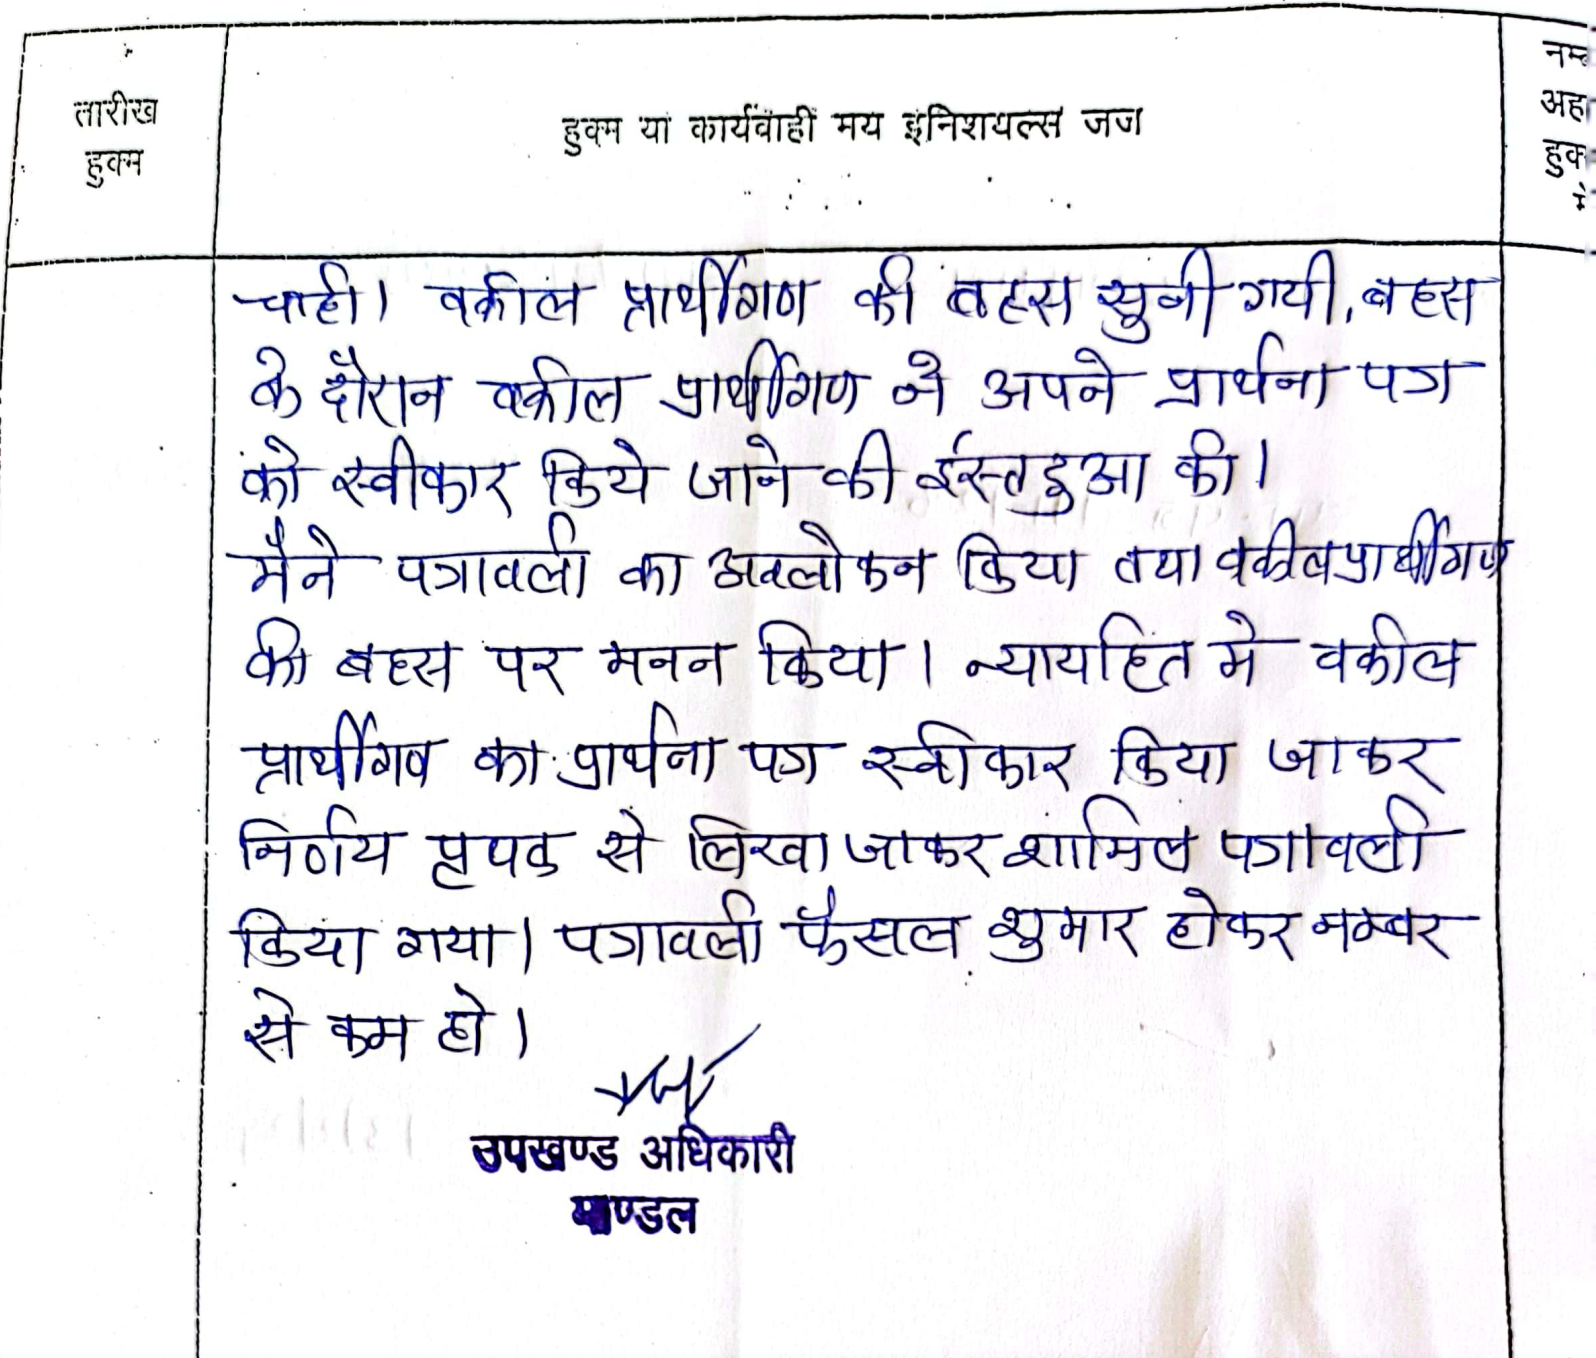 तारीख
हुक्म
हुक्म या कार्यवाही मय इनिशयल्स जज
नम्ब
अह
हुक
में
चाही। वकील प्रार्थीगण की बहस सुनी गयी, बहस
के दौरान वकील प्रार्थीगण ने अपने प्रार्थना पत्र
को स्वीकार किये जाने की ईस्तदुआ की।
मैने पत्रावली का अवलोकन किया तथा वकील प्रार्थीगण
की बहस पर मनन किया। न्यायहित मे वकील
प्रार्थीगण का प्रार्थना पत्र स्वीकार किया जाकर
निर्णय पृथक से लिखा जाकर शामिल पत्रावली
किया गया। पत्रावली फैसल शुमार होकर नम्बर
से कम हो।
उपखण्ड अधिकारी
माण्डल